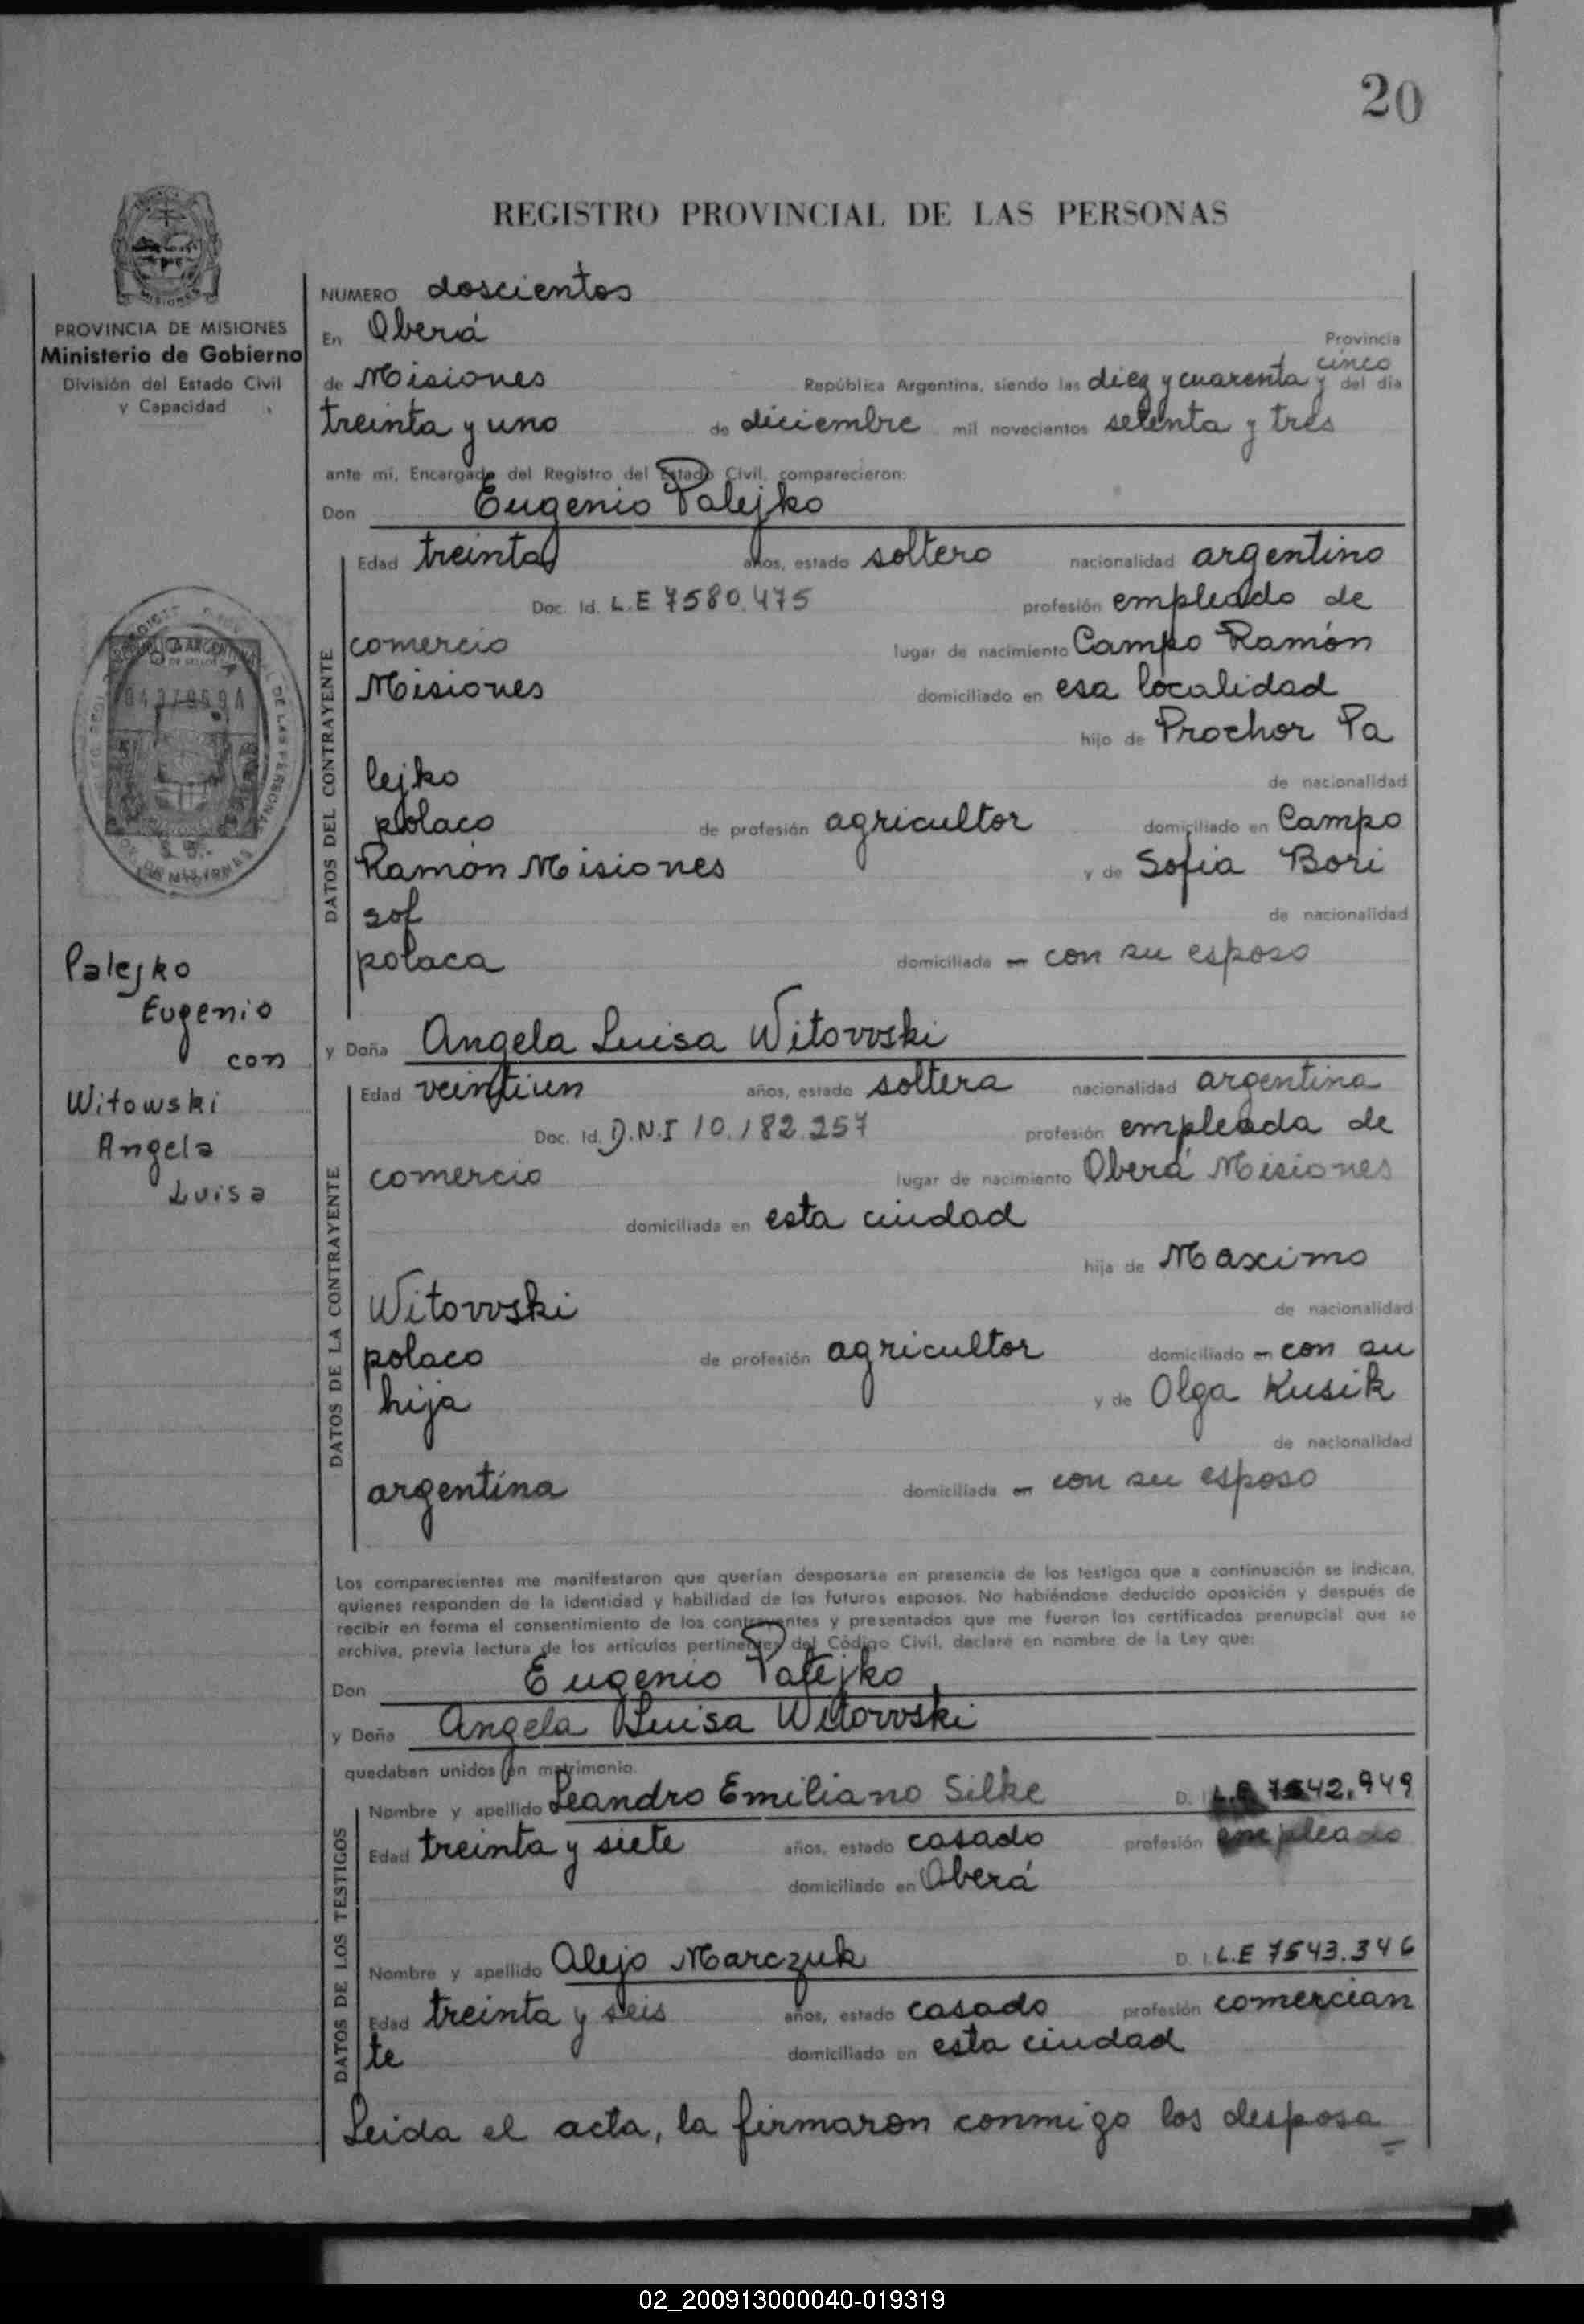 20
REGISTRO PROVINCIAL DE LAS PERSONAS
PROVINCIA DE MISIONES
Ministerio de Gobierno
División del Estado Civil
y Capacidad
NUMERO doscientos
En Oberá Provincia
de Misiones República Argentina, siendo las diez y cuarenta y cinco del día
treinta y uno de diciembre mil novecientos setenta y tres
ante mí, Encargado del Registro del Estado Civil, comparecieron:
Don Eugenio Palejko
DATOS DEL CONTRAYENTE
Edad treinta años, estado soltero nacionalidad argentino
Doc. Id. L.E 7580.475 profesión empleado de
comercio lugar de nacimiento Campo Ramón
Misiones domiciliado en esa localidad
hijo de Prochor Pa
lejko de nacionalidad
polaco de profesión agricultor domiciliado en Campo
Ramón Misiones y de Sofia Bori
sof de nacionalidad
polaca domiciliada en con su esposo
Palejko
Eugenio
con
Witowski
Angela
Luisa
y Doña Angela Luisa Witowski
DATOS DE LA CONTRAYENTE
Edad veintiun años, estado soltera nacionalidad argentina
Doc. Id. D.N.I 10.182.257 profesión empleada de
comercio lugar de nacimiento Oberá Misiones
domiciliada en esta ciudad
hija de Maximo
Witowski de nacionalidad
polaco de profesión agricultor domiciliado en con su
hija y de Olga Kusik
de nacionalidad
argentina domiciliada en con su esposo
Los comparecientes me manifestaron que querían desposarse en presencia de los testigos que a continuación se indican,
quienes responden de la identidad y habilidad de los futuros esposos. No habiéndose deducido oposición y después de
recibir en forma el consentimiento de los contrayentes y presentados que me fueron los certificados prenupcial que se
archiva, previa lectura de los artículos pertinentes del Código Civil, declaré en nombre de la Ley que:
Don Eugenio Palejko
y Doña Angela Luisa Witowski
quedaban unidos en matrimonio.
DATOS DE LOS TESTIGOS
Nombre y apellido Leandro Emiliano Silke D. I. L.E 7542.949
Edad treinta y siete años, estado casado profesión empleado
domiciliado en Oberá
Nombre y apellido Alejo Marczuk D. I. L.E 7543.346
Edad treinta y seis años, estado casado profesión comercian
te domiciliado en esta ciudad
Leida el acta, la firmaron conmigo los desposa
02_200913000040-019319